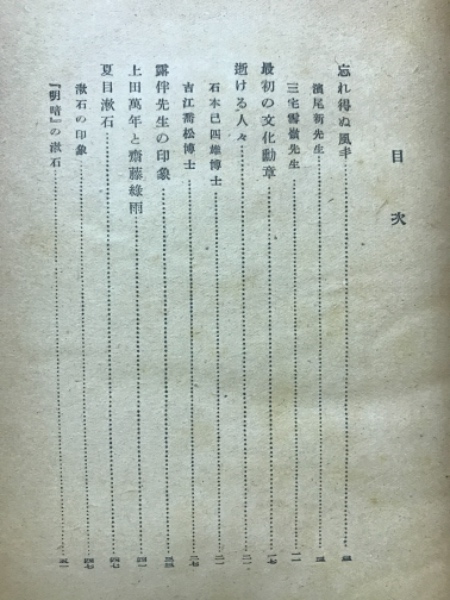 目次
忘れ得ぬ風丰……三
濱尾新先生……三
三宅雪嶺先生……一一
最初の文化勳章……一七
逝ける人々……二一
石本已四雄博士……二一
吉江喬松博士……二七
露伴先生の印象……三三
上田萬年と齋藤緑雨……四一
夏目漱石……四七
漱石の印象……四七
『明暗』の漱石……五一